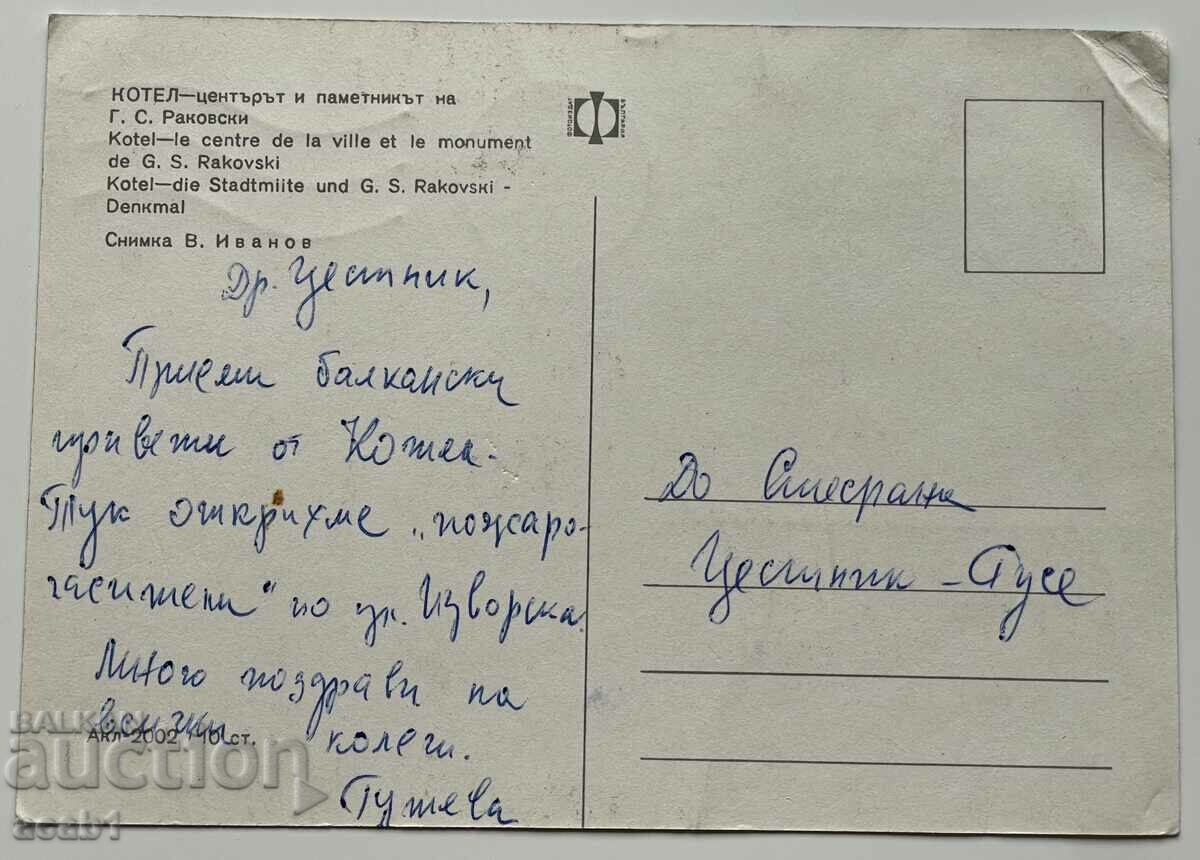 КОТЕЛ—центърът и паметникът на
Г. С. Раковски
Kotel—le centre de la ville et le monument
de G. S. Rakovski
Kotel—die Stadtmiite und G. S. Rakovski -
Denkmal
Снимка В. Иванов
ФОТОИЗДАТ
БЪЛГАРИЯ
Др. Цестник,
Приеми балкански
привети от Котел.
Тук открихме „пожаро-
гасители" по ул. Изворска.
Много поздрави на
всички колеги.
Акл-2002 10 ст.
До
Цестник - Русе
BALKAN
auction
acab1